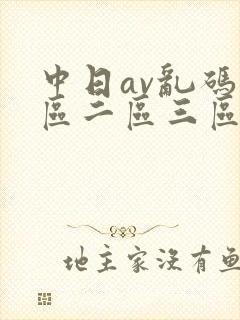 中日av亂碼
區二區三區
地主家沒有魚